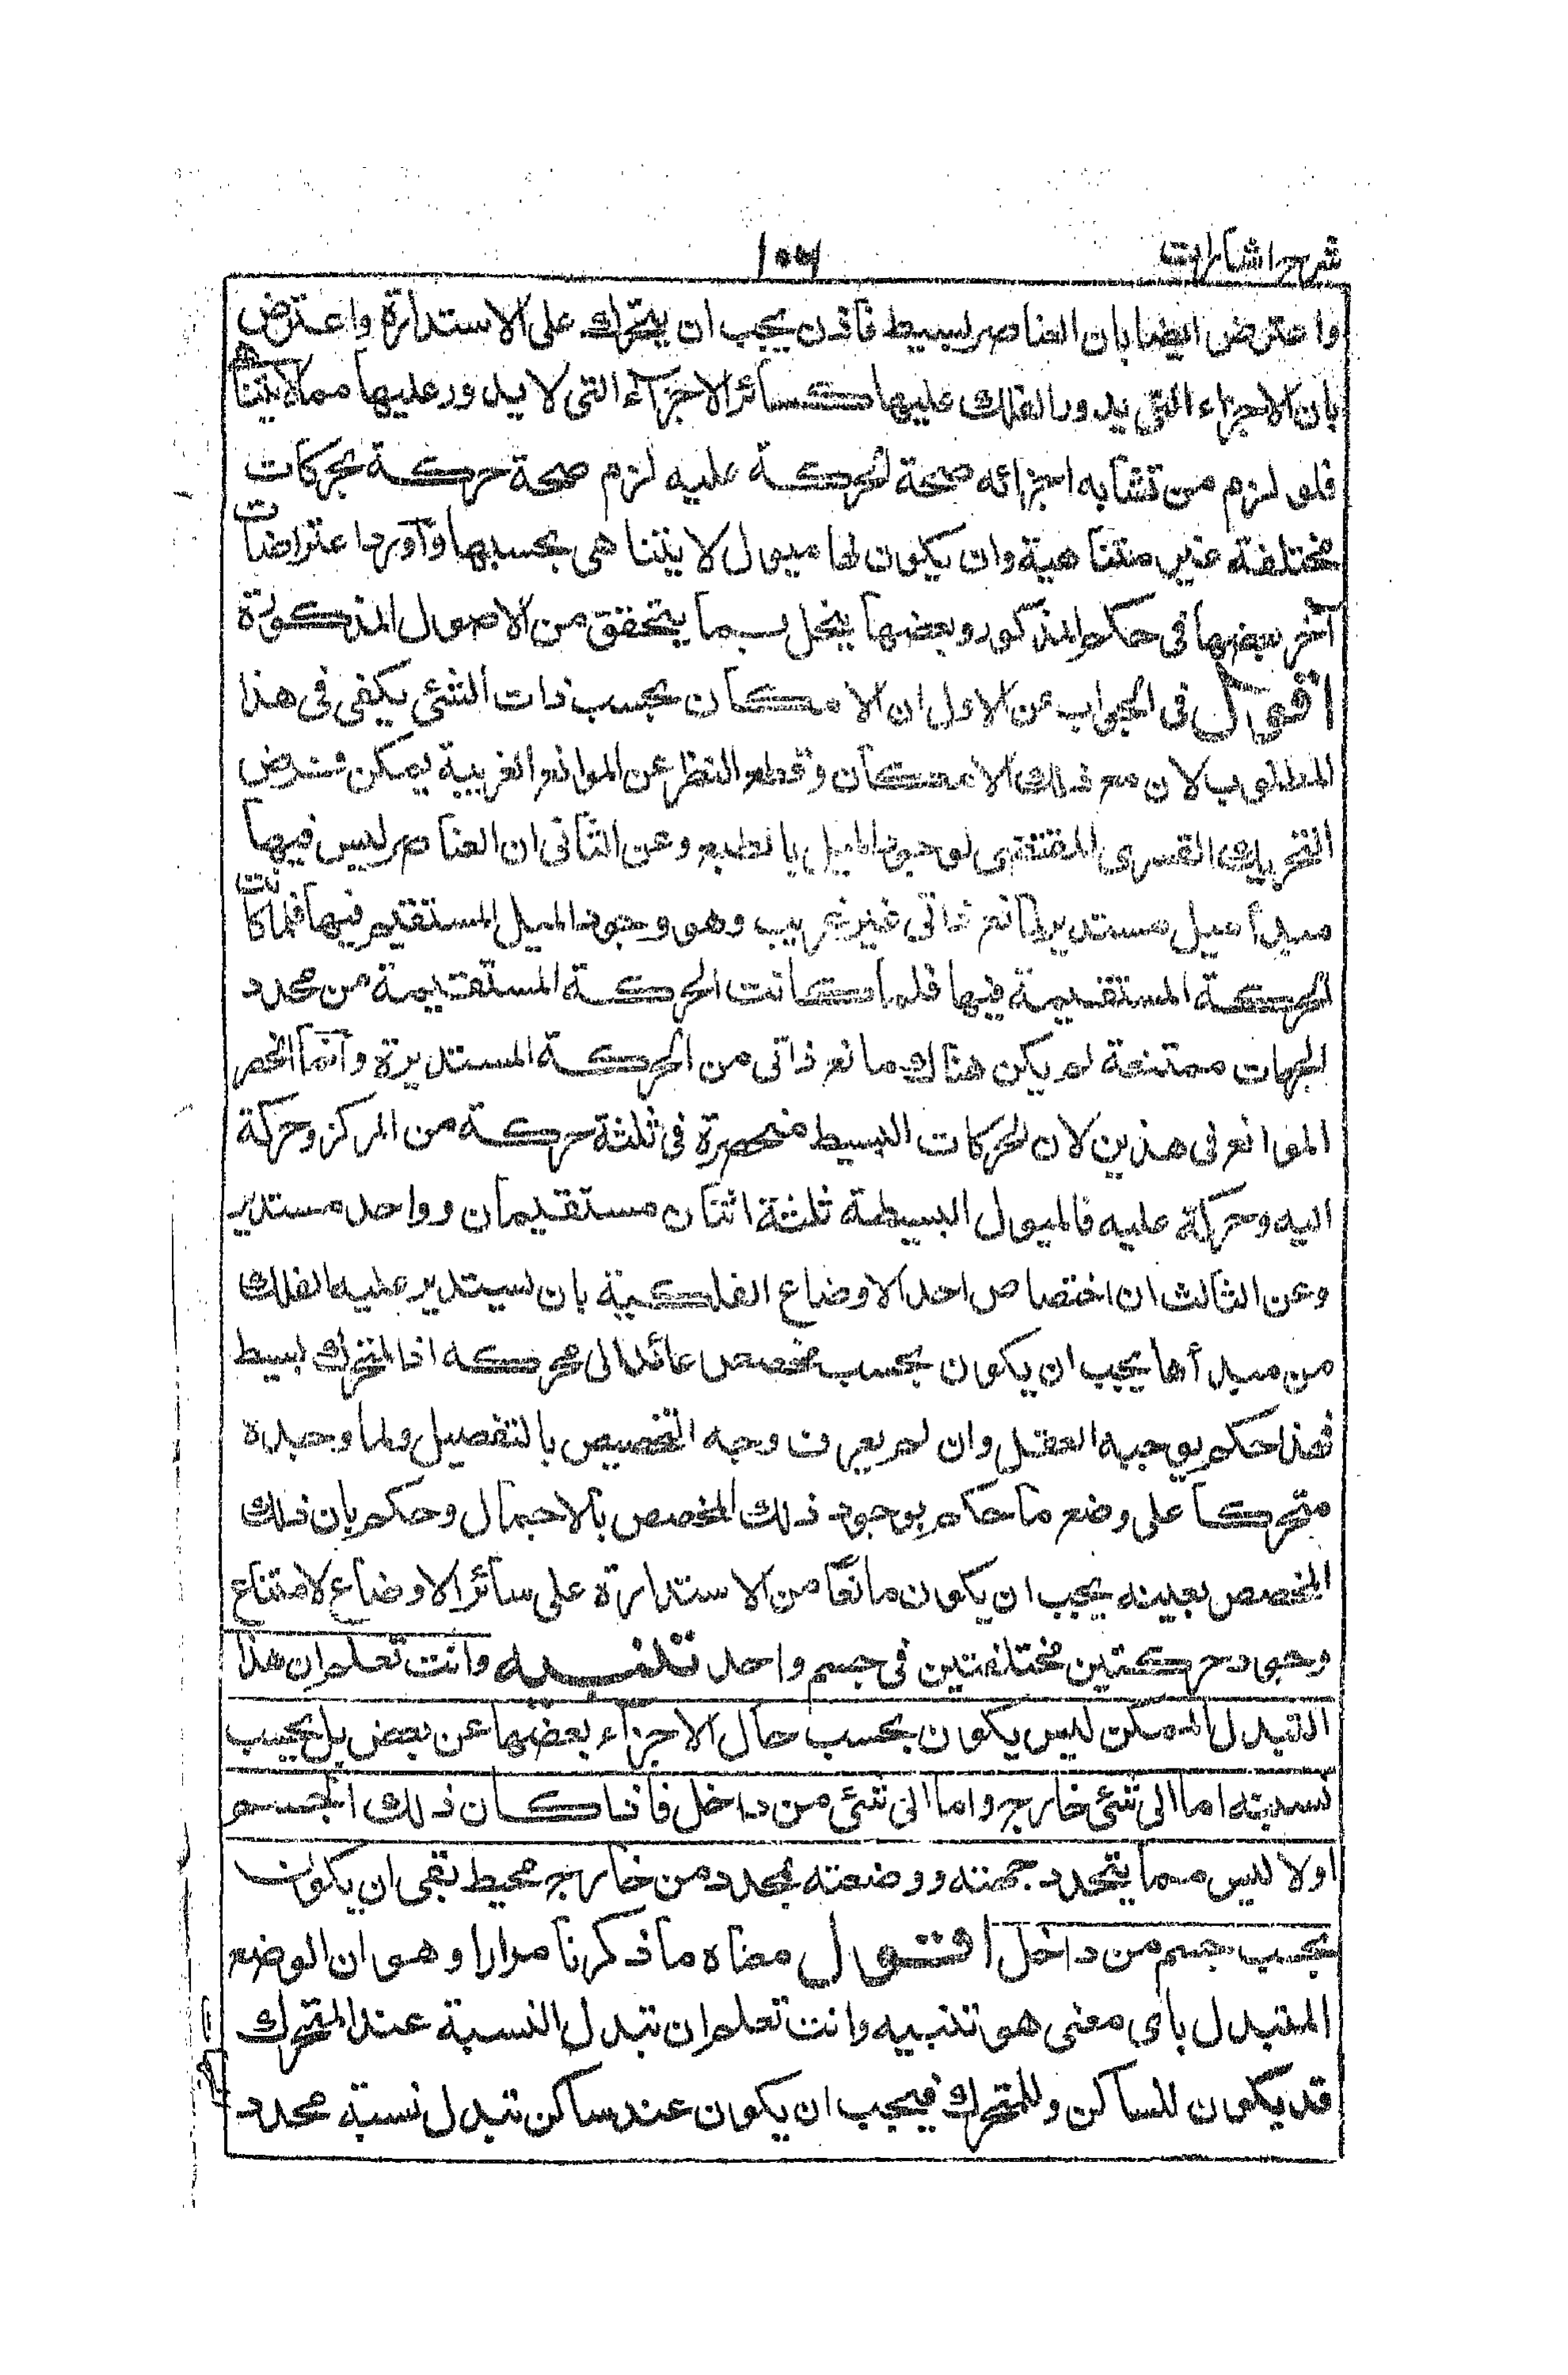 شرح اشارات
۱۰۶
واعترض ايضا بان العناصر لبسيط فاذن يجب ان يتحرك على الاستدارة واعترض
بان الاجزاء التى يدور الفلك عليها كسائر الاجزاء التى لا يدور عليها مما لا يتناهى
فلو لزم من تشابه اجزائه صحة الحركة عليه لزم صحة حركة بحركات
مختلفة غير متناهية وان يكون لها ميول لا يتناهى بحسبها وآورد اعتراضات
آخر بعضها فى حكم المذكور وبعضها ينحل بما يتحقق من الاصول المذكورة
اقول فى الجواب عن الاول ان الامكان بحسب ذات الشئ يكفى فى هذا
المطلوب لان مع ذلك الامكان وقطع النظر عن الموانع الغريبة يمكن فرض
التحريك القسرى المقتضى لوجود الميل بالطبع وعن الثانى ان العناصر ليس فيها
مبدأ ميل مستدير لمانع ذاتى غير غريب وهو وجود الميل المستقيم فيها فلما كانت
الحركة المستقيمة فيها فلما كانت الحركة المستقيمة من محدد
الجهات ممتنعة لم يكن هناك مانع ذاتى من الحركة المستديرة وآنما انحصر
الموانع فى هذين لان الحركات البسيط منحصرة فى ثلثة حركة من المركز وحركة
اليه وحركة عليه فالميول البسيطة ثلثة اثنان مستقيمان وواحد مستدير
وعن الثالث ان اختصاص احد الاوضاع الفلكية بان يستدير عليه الفلك
من مبدأها يجب ان يكون بحسب مخصص عائد الى محركه اذ المتحرك بسيط
فهذا حكم يوجبه العقل وان لم يعرف وجه التخصيص بالتفصيل ولما وجده
متحركا على وضع ما حكم بوجود ذلك المخصص بالاجمال وحكم بان ذلك
المخصص بعينه يجب ان يكون مانعًا من الاستدارة على سائر الاوضاع لامتناع
وجود حركتين مختلفتين فى جسم واحد تنبيه وانت تعلم ان هذا
التبدل الممكن ليس يكون بحسب حال الاجزاء بعضها عن بعض بل بحسب
نسبته اما الى شئ خارج واما الى شئ من داخل فاذا كان ذلك الجسم
اولا ليس مما يتحدد جهته ووضعته بمحدد من خارج محيط بقى ان يكون
بحسب جسم من داخل اقول معناه ما ذكرنا مرارا وهو ان الوضع
المتبدل باى معنى هو تنبيه وانت تعلم ان تبدل النسبة عند المتحرك
قد يكون للساكن وللمتحرك فيجب ان يكون عند ساكن تبدل نسبة محدد